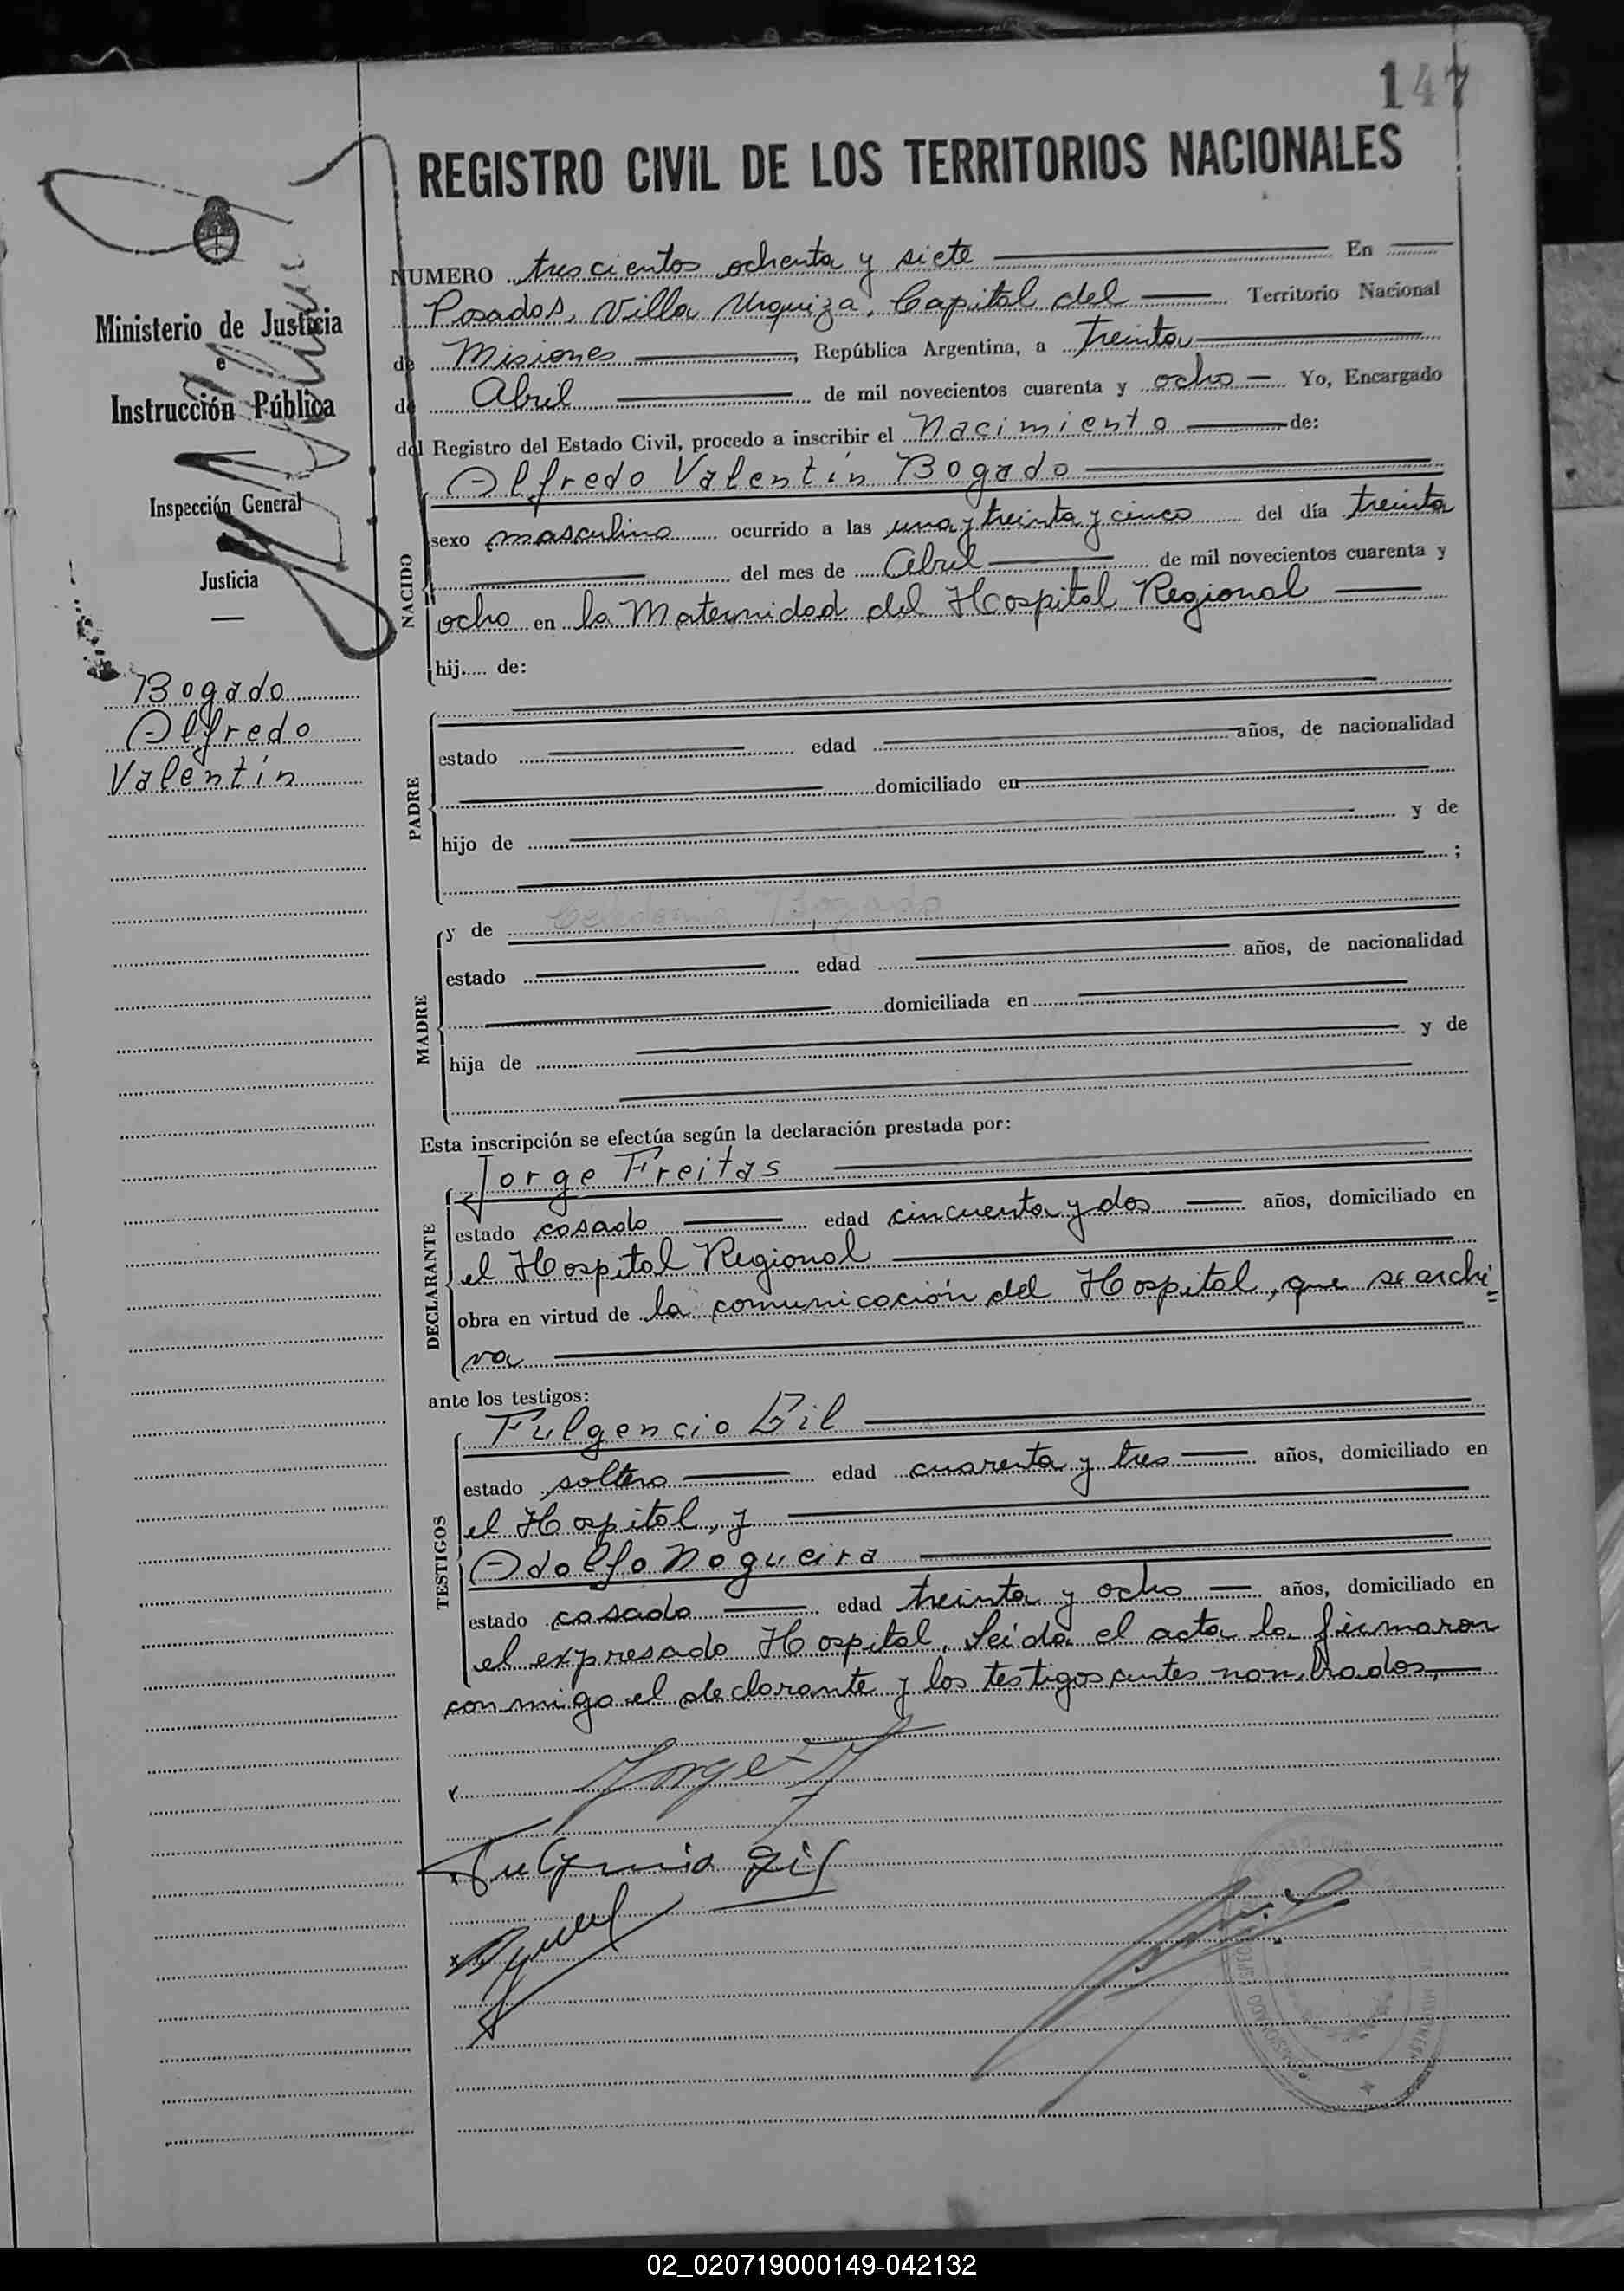 147
REGISTRO CIVIL DE LOS TERRITORIOS NACIONALES
Ministerio de Justicia
e
Instrucción Pública
Inspección General
Justicia
Bogado
Alfredo
Valentín
NUMERO trescientos ochenta y siete En
Posadas, Villa Urquiza, Capital del Territorio Nacional
de Misiones, República Argentina, a treinta
de Abril de mil novecientos cuarenta y ocho Yo, Encargado
del Registro del Estado Civil, procedo a inscribir el Nacimiento de:
NACIDO
Alfredo Valentín Bogado
sexo masculino ocurrido a las una y treinta y cinco del día treinta
del mes de Abril de mil novecientos cuarenta y
ocho en la Maternidad del Hospital Regional
hij.... de:
PADRE
estado edad años, de nacionalidad
domiciliado en
hijo de y de
;
MADRE
y de Celedonia Bogado
estado edad años, de nacionalidad
domiciliada en
hija de y de
Esta inscripción se efectúa según la declaración prestada por:
DECLARANTE
Jorge Freitas
estado casado edad cincuenta y dos años, domiciliado en
el Hospital Regional
obra en virtud de la comunicación del Hospital, que se archi=
va
ante los testigos:
TESTIGOS
Fulgencio Gil
estado soltero edad cuarenta y tres años, domiciliado en
el Hospital, y
Adolfo Nogueira
estado casado edad treinta y ocho años, domiciliado en
el expresado Hospital. Leída el acta la firmaron
conmigo el declarante y los testigos antes nombrados.
Jorge F
Fulgencio Gil
MISIONES
02_020719000149-042132